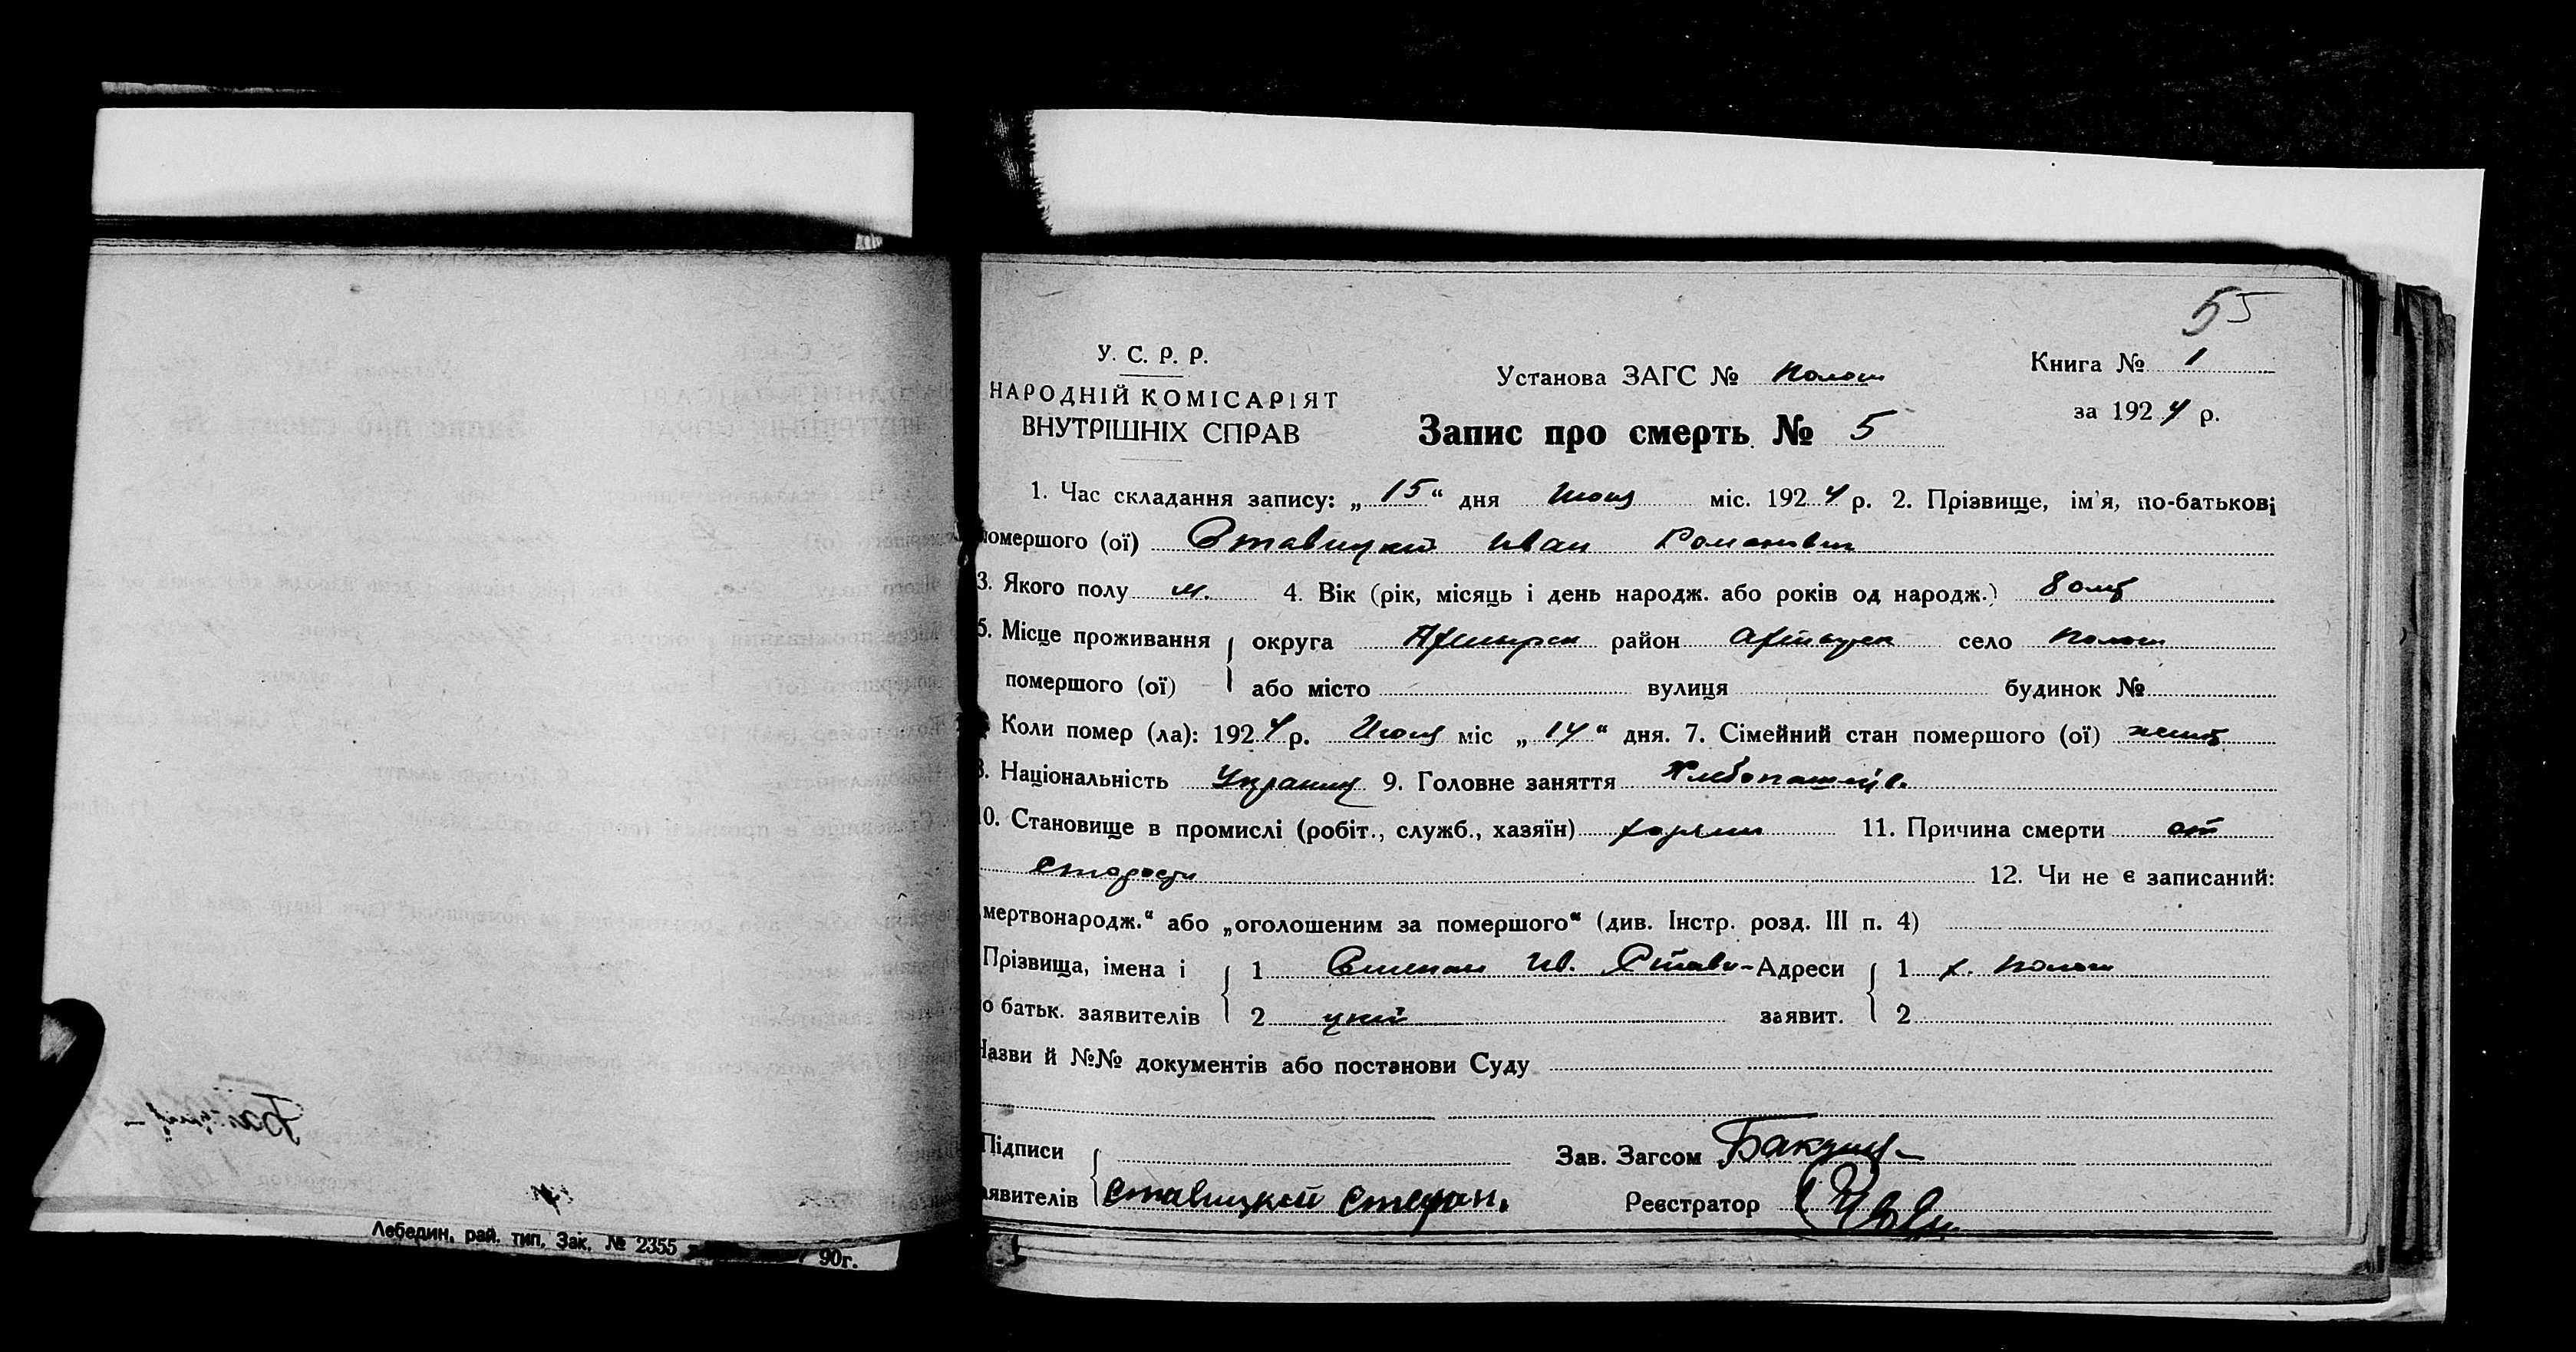 55
У. С. Р. Р.
НАРОДНІЙ КОМІСАРІЯТ
ВНУТРІШНІХ СПРАВ
Установа ЗАГС №
Книга № 1
за 1924 р.
Запис про смерть № 5
1. Час складання запису: „15“ дня Июня міс. 1924 р. 2. Прізвище, ім'я, по-батькові
помершого (ої) Ставицкий Иван Романович
3. Якого полу м. 4. Вік (рік, місяць і день народж. або років од народж.) 80 лет
5. Місце проживання округа Ахтырск район село
помершого (ої) або місто вулиця будинок №
Коли помер (ла): 1924 р. Июня міс „14“ дня. 7. Сімейний стан помершого (ої)
8. Національність Украинец 9. Головне заняття
10. Становище в промислі (робіт., служб., хазяїн) хозяин 11. Причина смерти от
старости 12. Чи не є записаний:
мертвонародж.“ або „оголошеним за помершого“ (див. Інстр. розд. III п. 4)
Прізвища, імена і 1 Степан Ив. Стави- Адреси 1 х.
о батьк. заявителів 2 цкий заявит. 2
Назви й №№ документів або постанови Суду
Підписи Зав. Загсом
аявителів Ставицкий Стефан. Реєстратор
Лебедин, рай. тип, Зак. № 2355 90г.